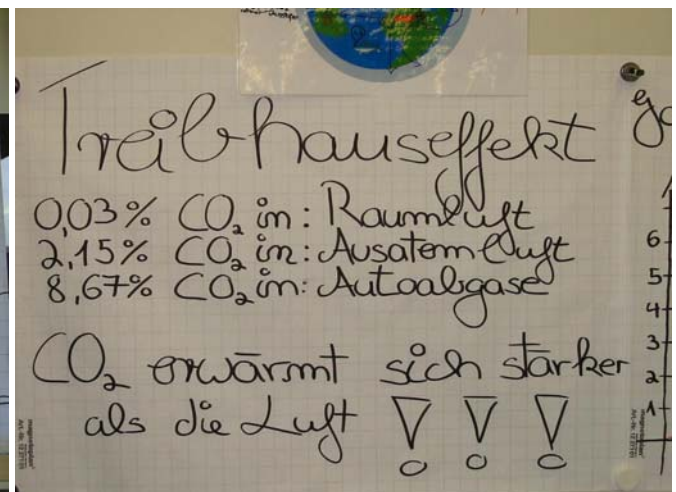 Treibhauseffekt
0,03% CO₂ in: Raumluft
2,15% CO₂ in: Ausatemluft
8,67% CO₂ in: Autoabgase
CO₂ erwärmt sich stärker
als die Luft !!!
6
5
4
3
2
1